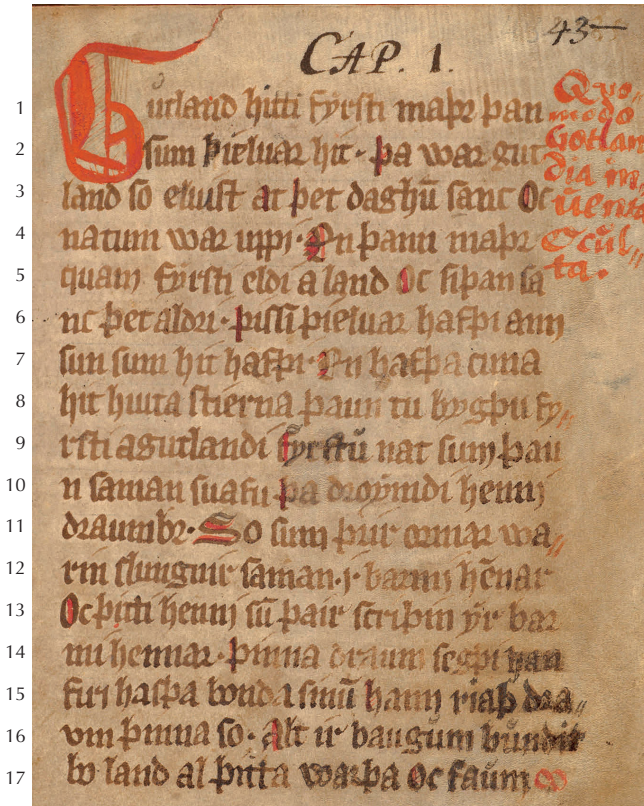 CAP. 1.
43
1 Gutland hitti fyrsti maþr þan
2 sum þieluar hit · þa war gut
3 land so eluist at þet daghū sanc Oc
4 natum war uppi · En þann maþr
5 quam fyrsti eldi a land Oc siþan sa
6 nc þet aldri · þissi þieluar hafþi ann
7 sun sum hit hafþi · En hafþa cuna
8 hit huita stierna þaun tu bygþu fy〃
9 rsti agutlandi fyrstū nat sum þau
10 n saman suafu þa droymdi henni
11 draumbr · So sum þrir ormar wa〃
12 rin slungnir saman · j barmi hēnar
13 Oc þitti henni sū þair scriþin yr bar
14 mi hennar · þinna draum segþi han
15 firi hasþa bonda sinū hann riaþ dra〃
16 vm þinna so · Alt ir baugum bundit
17 bo land al þitta warþa oc faum
Quo
modo
Gotlan
dia in
ūenta
Occūl
ta.